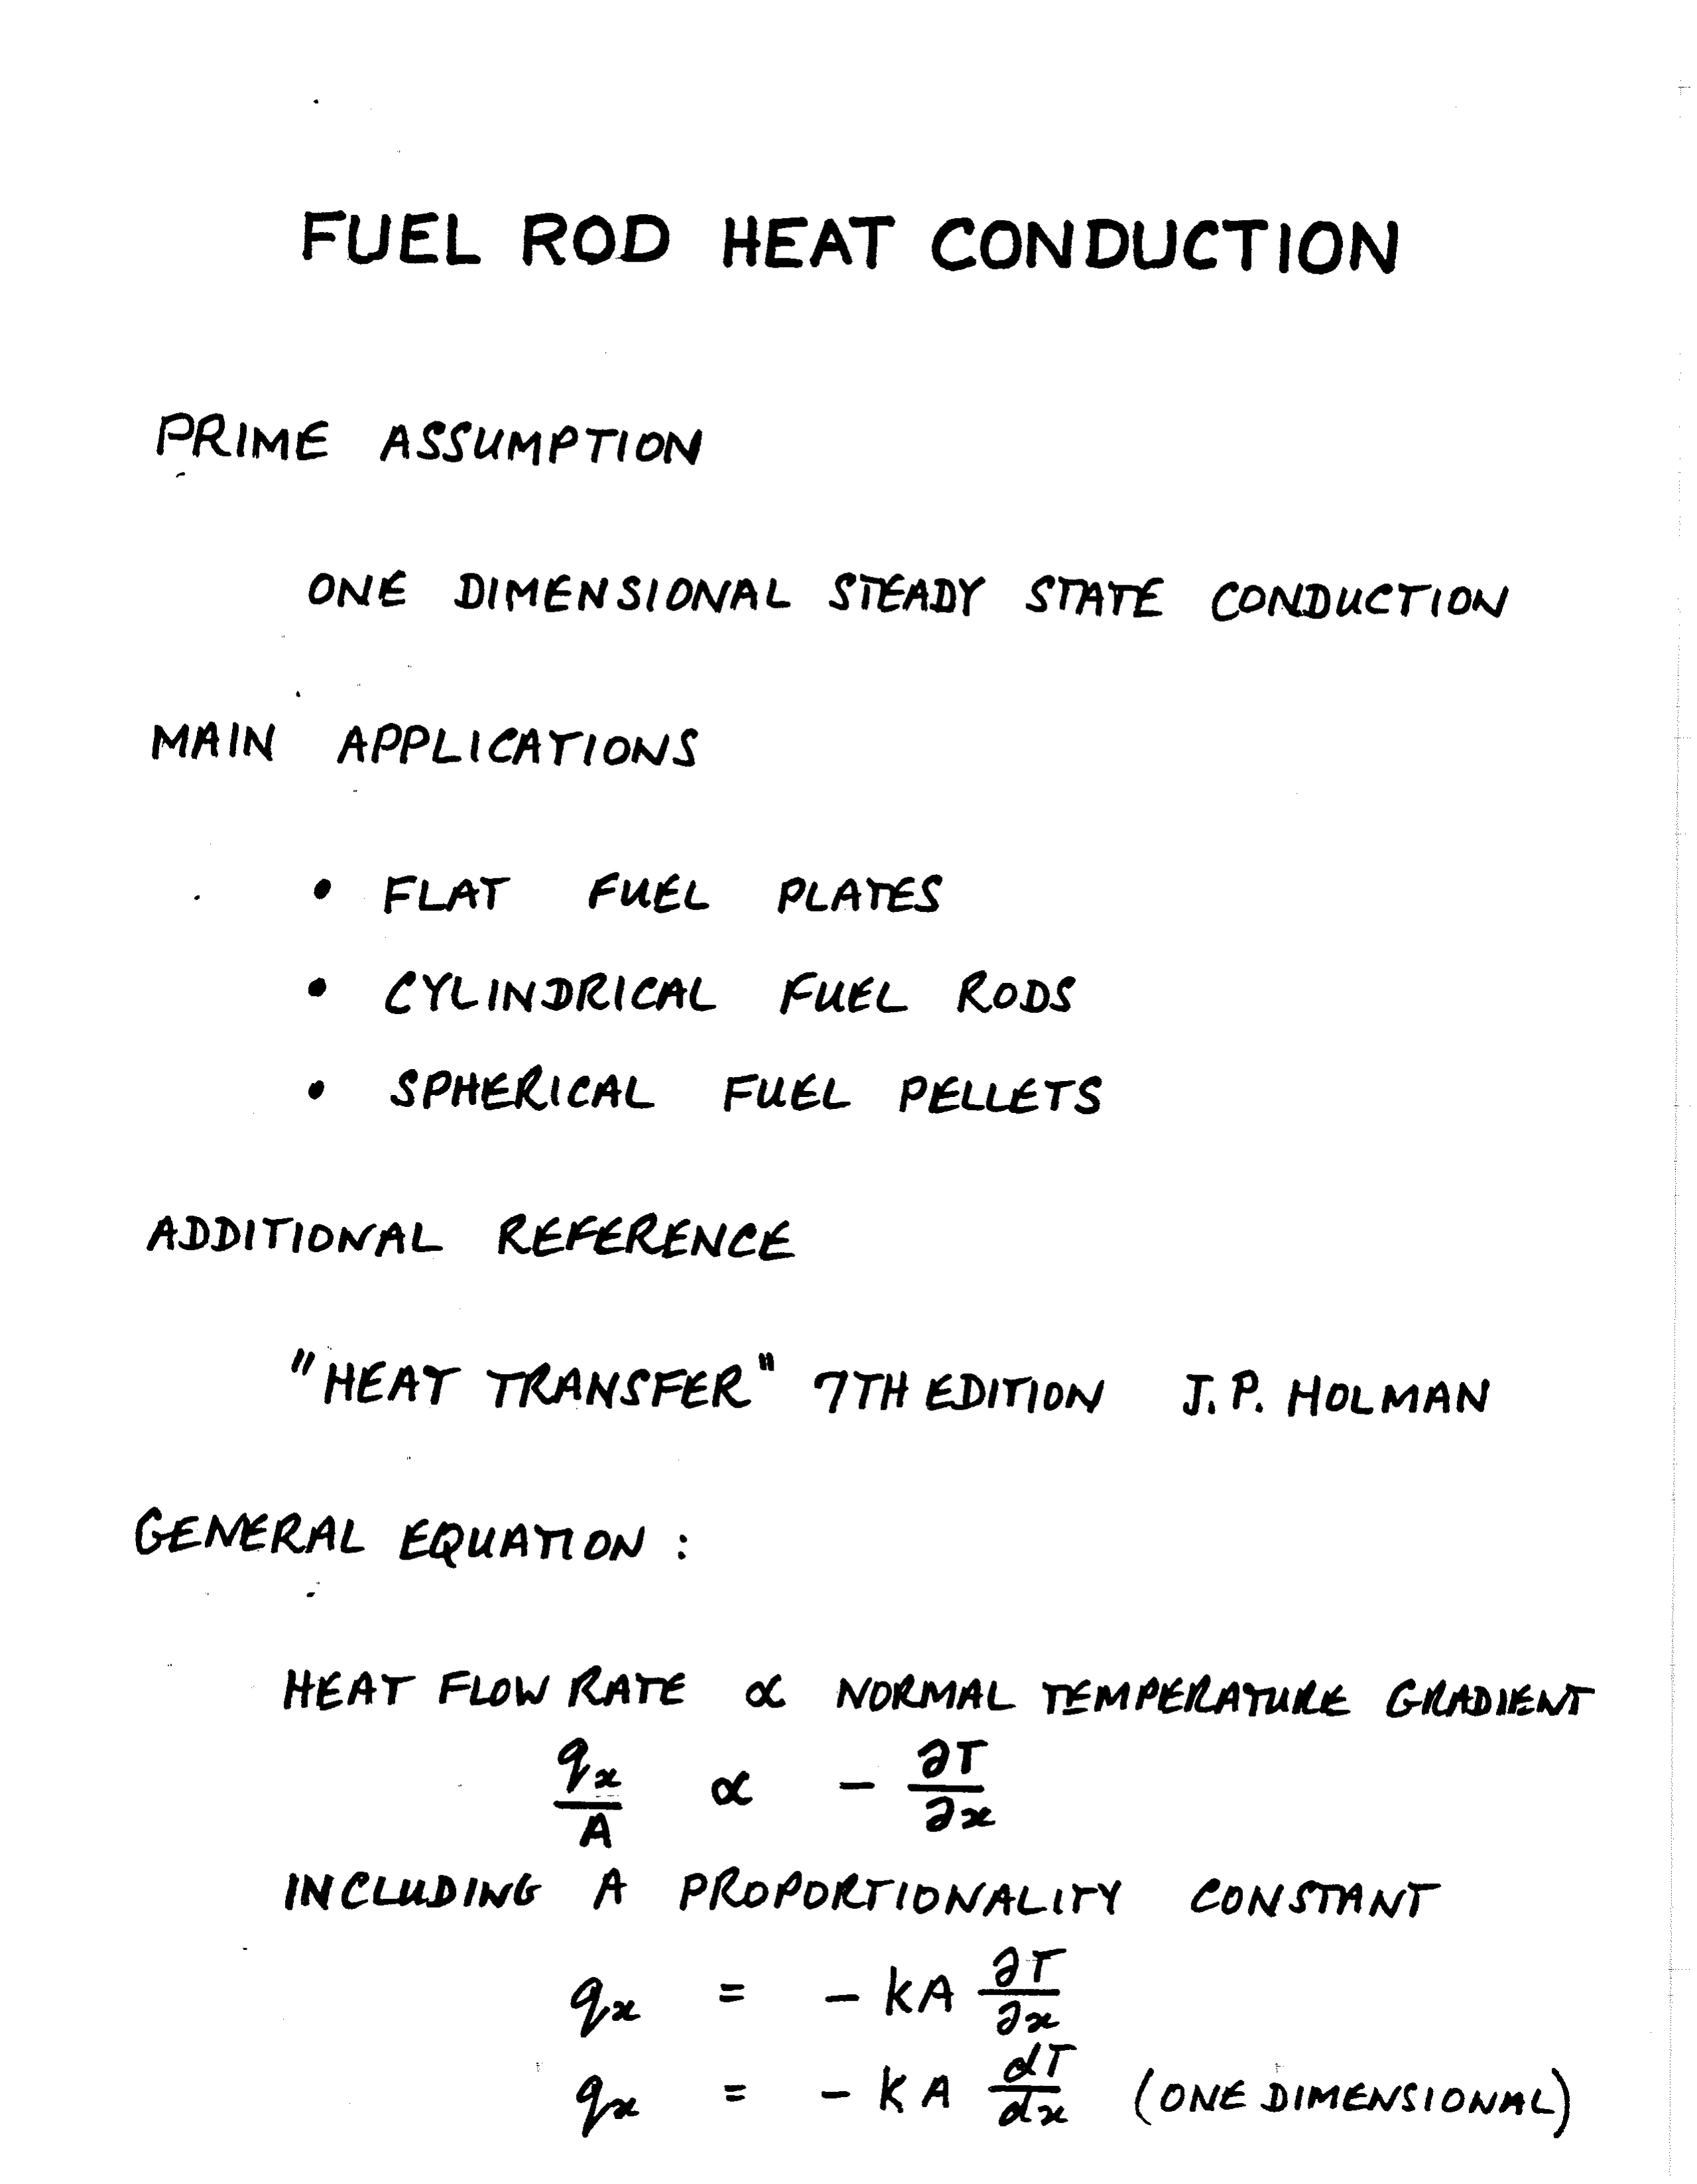 FUEL ROD HEAT CONDUCTION
PRIME ASSUMPTION
ONE DIMENSIONAL STEADY STATE CONDUCTION
MAIN APPLICATIONS
• FLAT FUEL PLATES
• CYLINDRICAL FUEL RODS
• SPHERICAL FUEL PELLETS
ADDITIONAL REFERENCE
"HEAT TRANSFER" 7TH EDITION J.P. HOLMAN
GENERAL EQUATION :
HEAT FLOW RATE ∝ NORMAL TEMPERATURE GRADIENT
qx/A ∝ - ∂T/∂x
INCLUDING A PROPORTIONALITY CONSTANT
qx = - kA ∂T/∂x
qx = - kA dT/dx (ONE DIMENSIONAL)